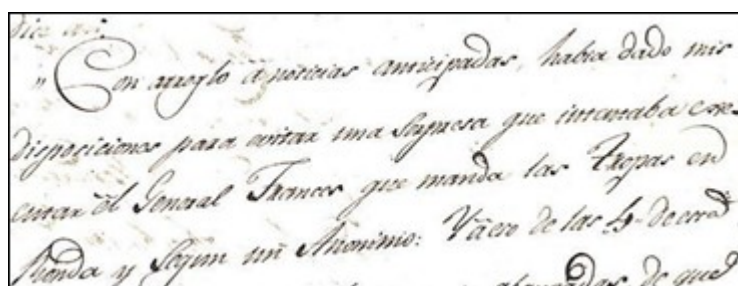 "Con arreglo á noticias anticipadas, habia dado mis
disposiciones para evitar una sorpresa que intentaba exe-
cutar el General Frances que manda las tropas en
Ronda y segun un Anonimo: Yá eso de las 4 de esta
abanzadas de que